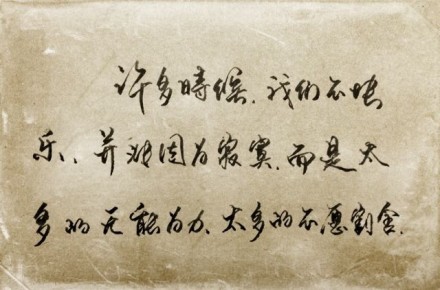 许多時候，我们不快
乐、并非因为寂寞，而是太
多的无能为力、太多的不愿割舍．